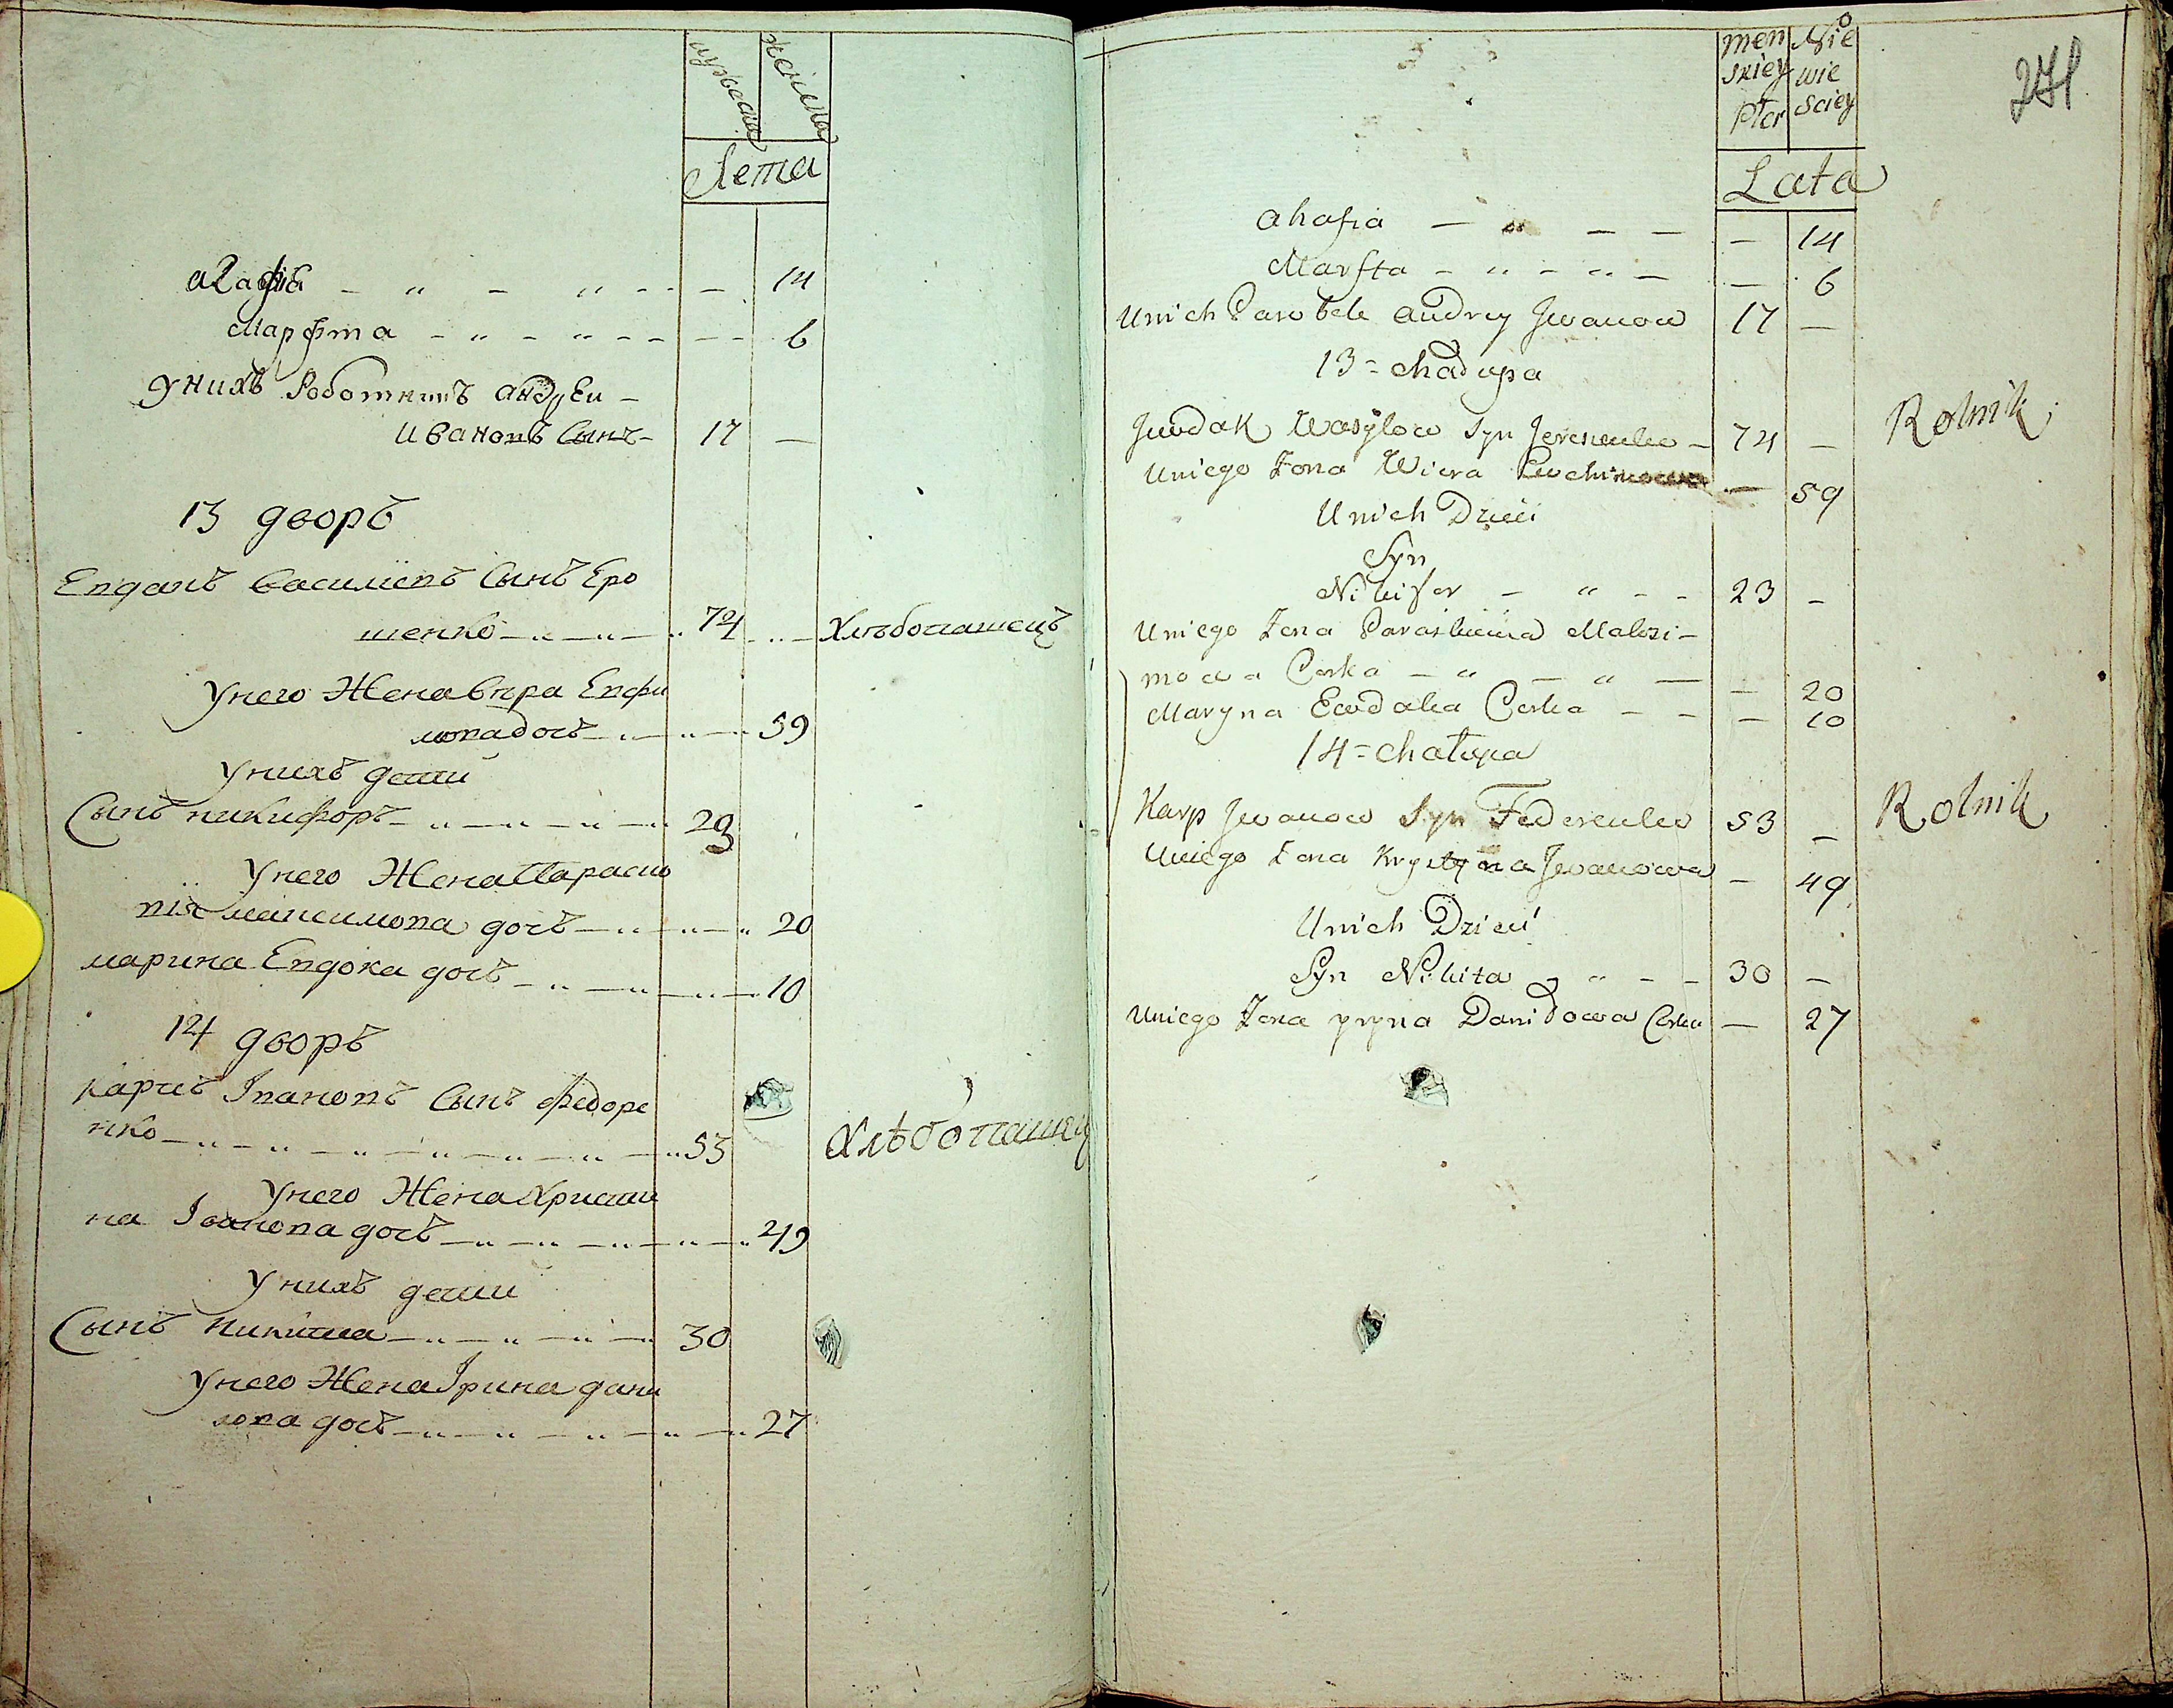 мужеска
женска
Лета
агафіа - " - " - - - 14
Марфта - " - " - - - - 6
унихъ Роботникъ андреи -
Ивановъ Сынъ - 17 -
13 дворъ
Евдакъ василіевъ Сынъ Еро
шенко - " - " - " 74 " - Хлѣбопашецъ
унего Жена вѣра Евфи
мова дочь - " - " - 59
унихъ дети
Сынъ никифоръ - " - " - " - " 23
унего Жена Параско
вія максимова дочь - " - " - " 20
марина Евдока дочь - " - " - " - 10
14 дворъ
карпъ Івановъ Сынъ Федоре
нко - " - " - " - " - " - " - " 53 Хлѣбопашец
унего Жена Христи
на Іванова дочь - " - " - " - " - " 49
унихъ дети
Сынъ никита - " - " - " - " 30
унего Жена Ірина дани
лова дочь - " - " - " - " - " 27
271
men Nie
skiey wie
Płci sciey
Lata
ahafia - " - - - 14
Marfta - " - " - - 6
Unich Parobek andrey Jwanow 17 -
13 = chałupa
Jewdak Wasylow Syn Jereszenko - 74 - Rolnik
Uniego Zona Wiera - 59
Unich Dzieci
Syn
Nikifor - " - - 23 -
Uniego Zona Paraskiewia Maksi-
mowa Corka - " - " - - 20
Maryna Ewdaka Corka - - - 10
14 = chałupa
Karp Jwanow Syn Fedorenko 53 - Rolnik
Uniego Zona Krystyna Jwanowa - 49
Unich Dzieci
Syn Nikita - " - - 30 -
Uniego Zona yryna Daniłowa Corka - 27